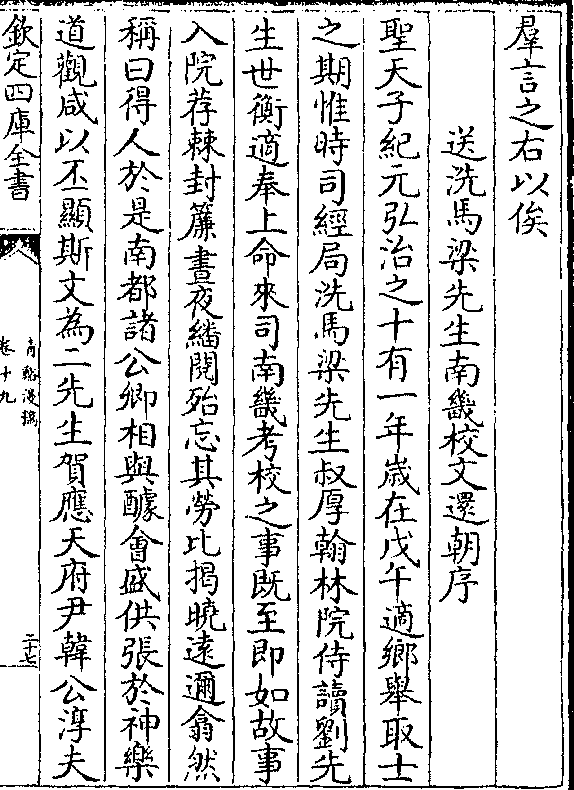 羣言之右以俟
送洗馬梁先生南畿校文還朝序
聖天子紀元弘治之十有一年歲在戊午適鄉舉取士
之期惟時司經局洗馬梁先生叔厚翰林院侍讀劉先
生世衡適奉上命來司南畿考校之事既至即如故事
入院荐棘封簾晝夜繙閱殆忘其勞比揭曉遠邇翕然
稱曰得人於是南都諸公卿相與醵會盛供張於神樂
道觀咸以丕顯斯文為二先生賀應天府尹韓公淳夫
欽定四庫全書
青谿漫稿
卷十九
二十七